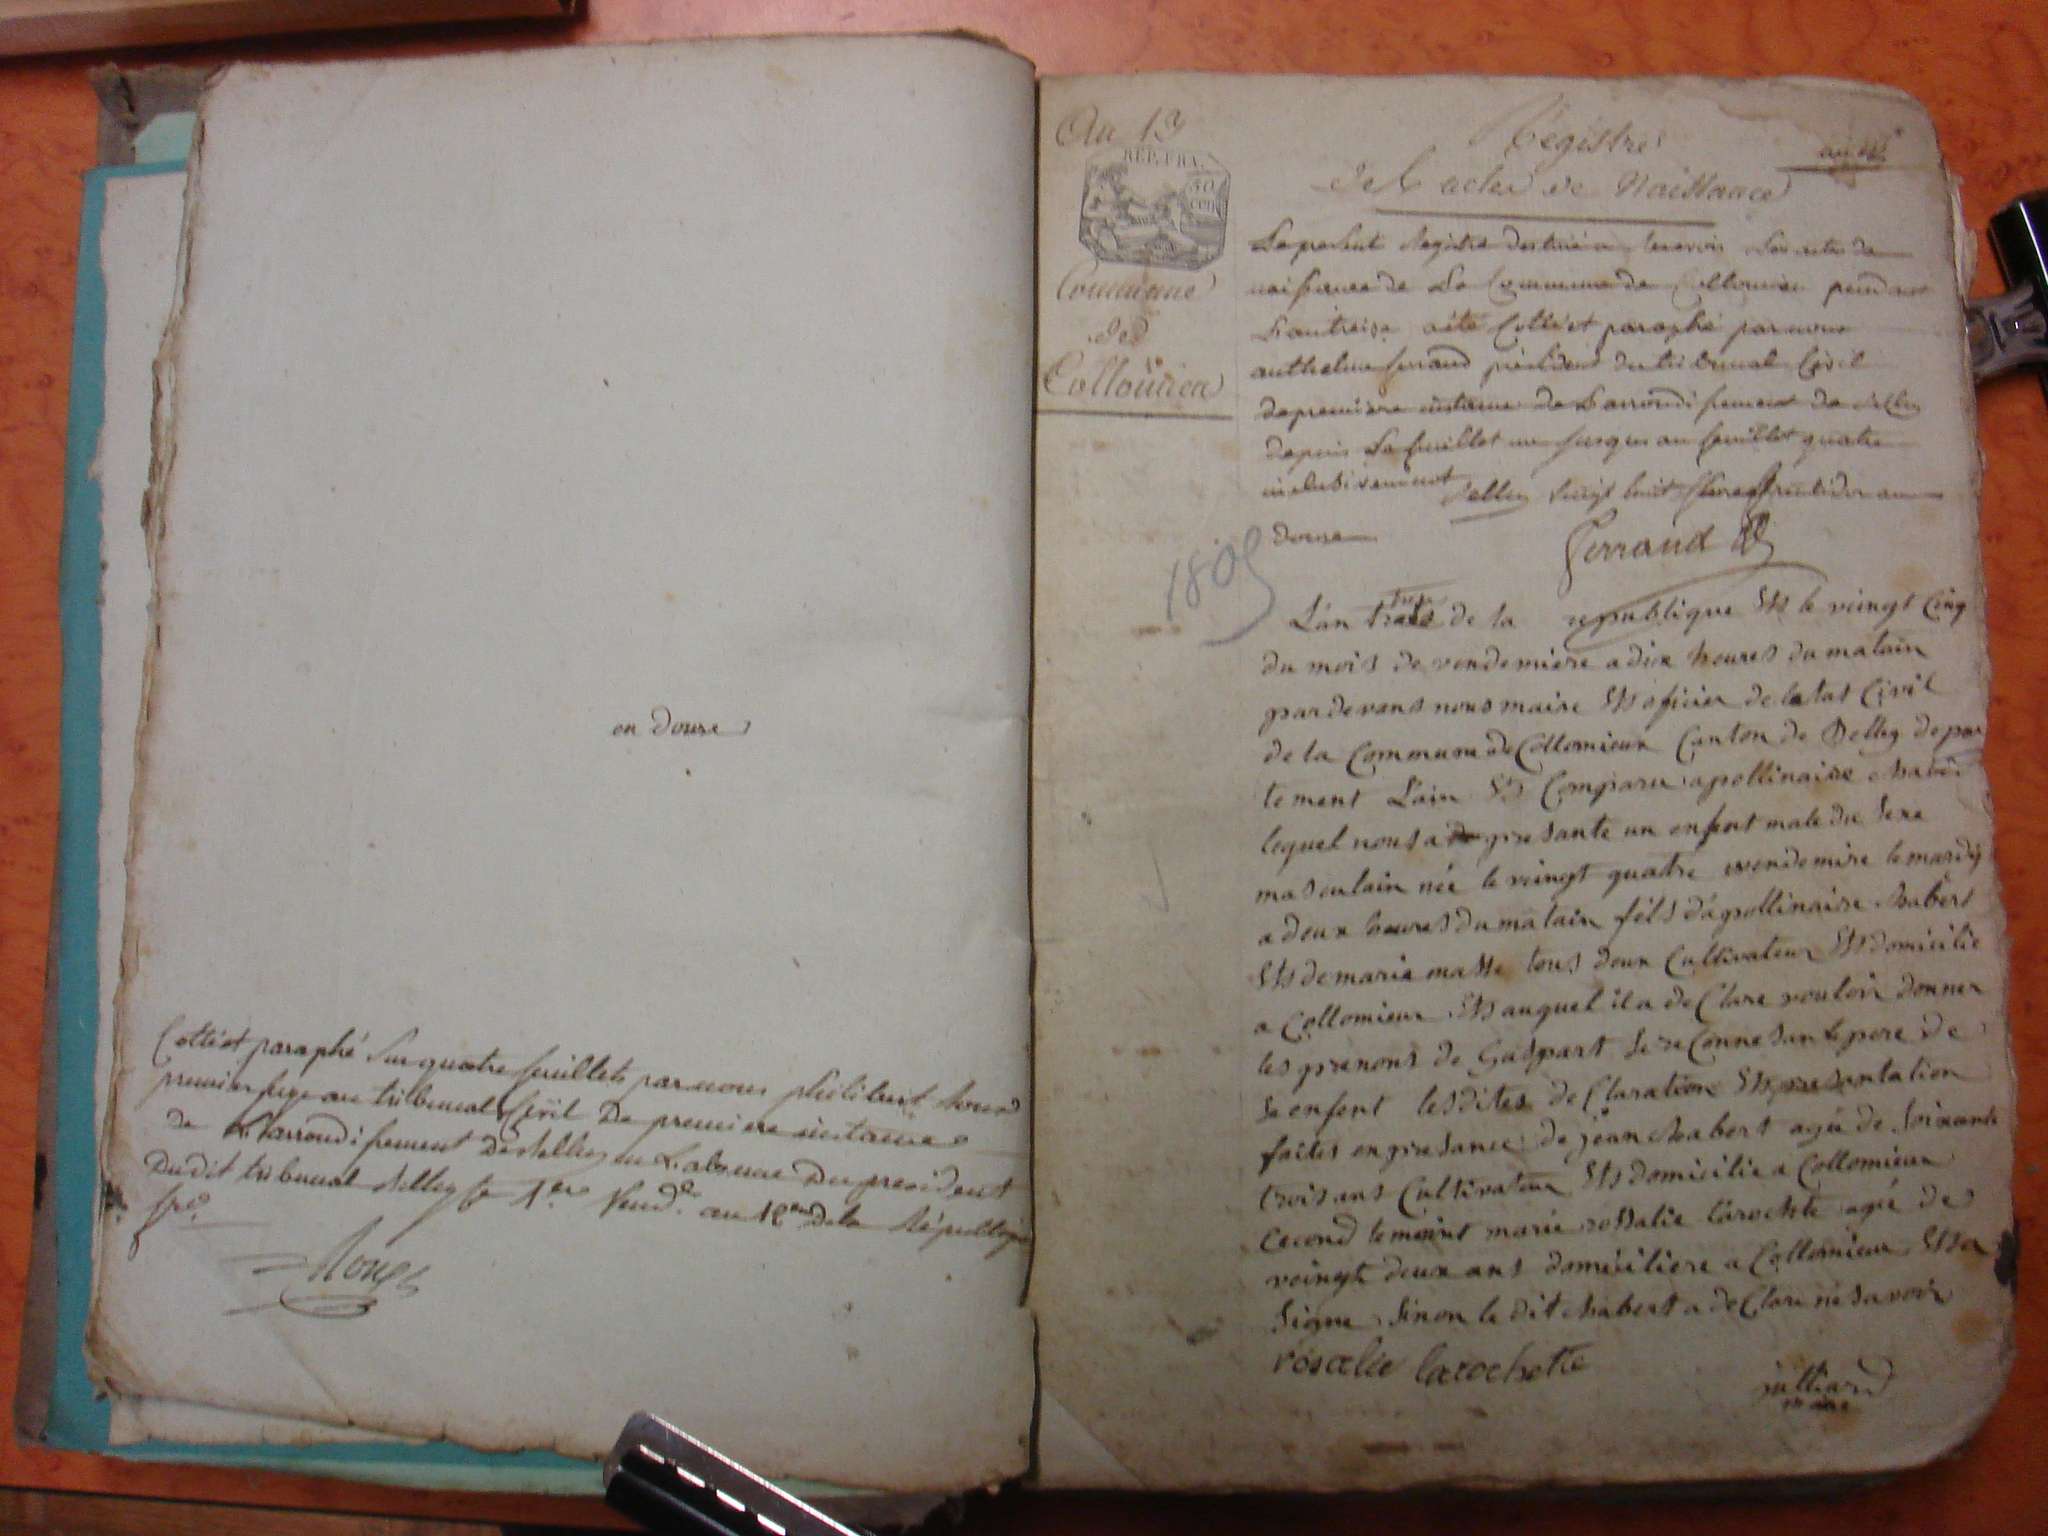 en douze
Cotté et paraphé sur quatre feuillets par nous
premier juge au tribunal Civil De première instance
de L'arrondissement De Belley en L'absence Du president
Dudit tribunal Belley le 1er Vend.re an 12eme De la République
fse.
An 13
REP. FRA.
50
CEN
Commune
de
Collomieu
Régistre
des actes de Naissance
Le présent Registre destiné a recevoir Les actes de
naissance de La Commune de Collomieu pendant
L'an treize a été Cotté et paraphé par nous
anthelme ferrand président du tribunal Civil
de première instance de L'arrondissement de Belley
depuis Le feuillet un jusques au feuillet quatre
inclusivement Belley vingt huit fructidor an
douze
Ferrand
1805
L'an treize de la republique Et le veingt Cinq
du mois de vendemiere a dix heures du matain
par devans nous maire Et oficier de letat Civil
de la Commune de Collomieux Canton de Belley depar
tement L'ain Et Comparu apollinaire chabert
lequel nous a presante un enfent male du sexe
masculain née le veingt quatre vendemire le mardy
a deux heures du matain fils d'apollinaire chabert
Et de marie masse tous deux Cultivateur Et domicilie
a Collomieux Et auquel il a de Clare vouloir donner
les prenons de Gaspart se re Connesan le pere de
se enfent les dites de Claration Et presantation
faites en presance de jean chabert agé de soixante
trois ans Cultivateur Et domicilie a Collomieux
Cecond temoint marie rossalie larochete agée de
veingt deux ans domiciliere a Collomieux Et a
signe sinon le dit chabert a de Clare ne savoir
rosalie larochette
julliard
maire